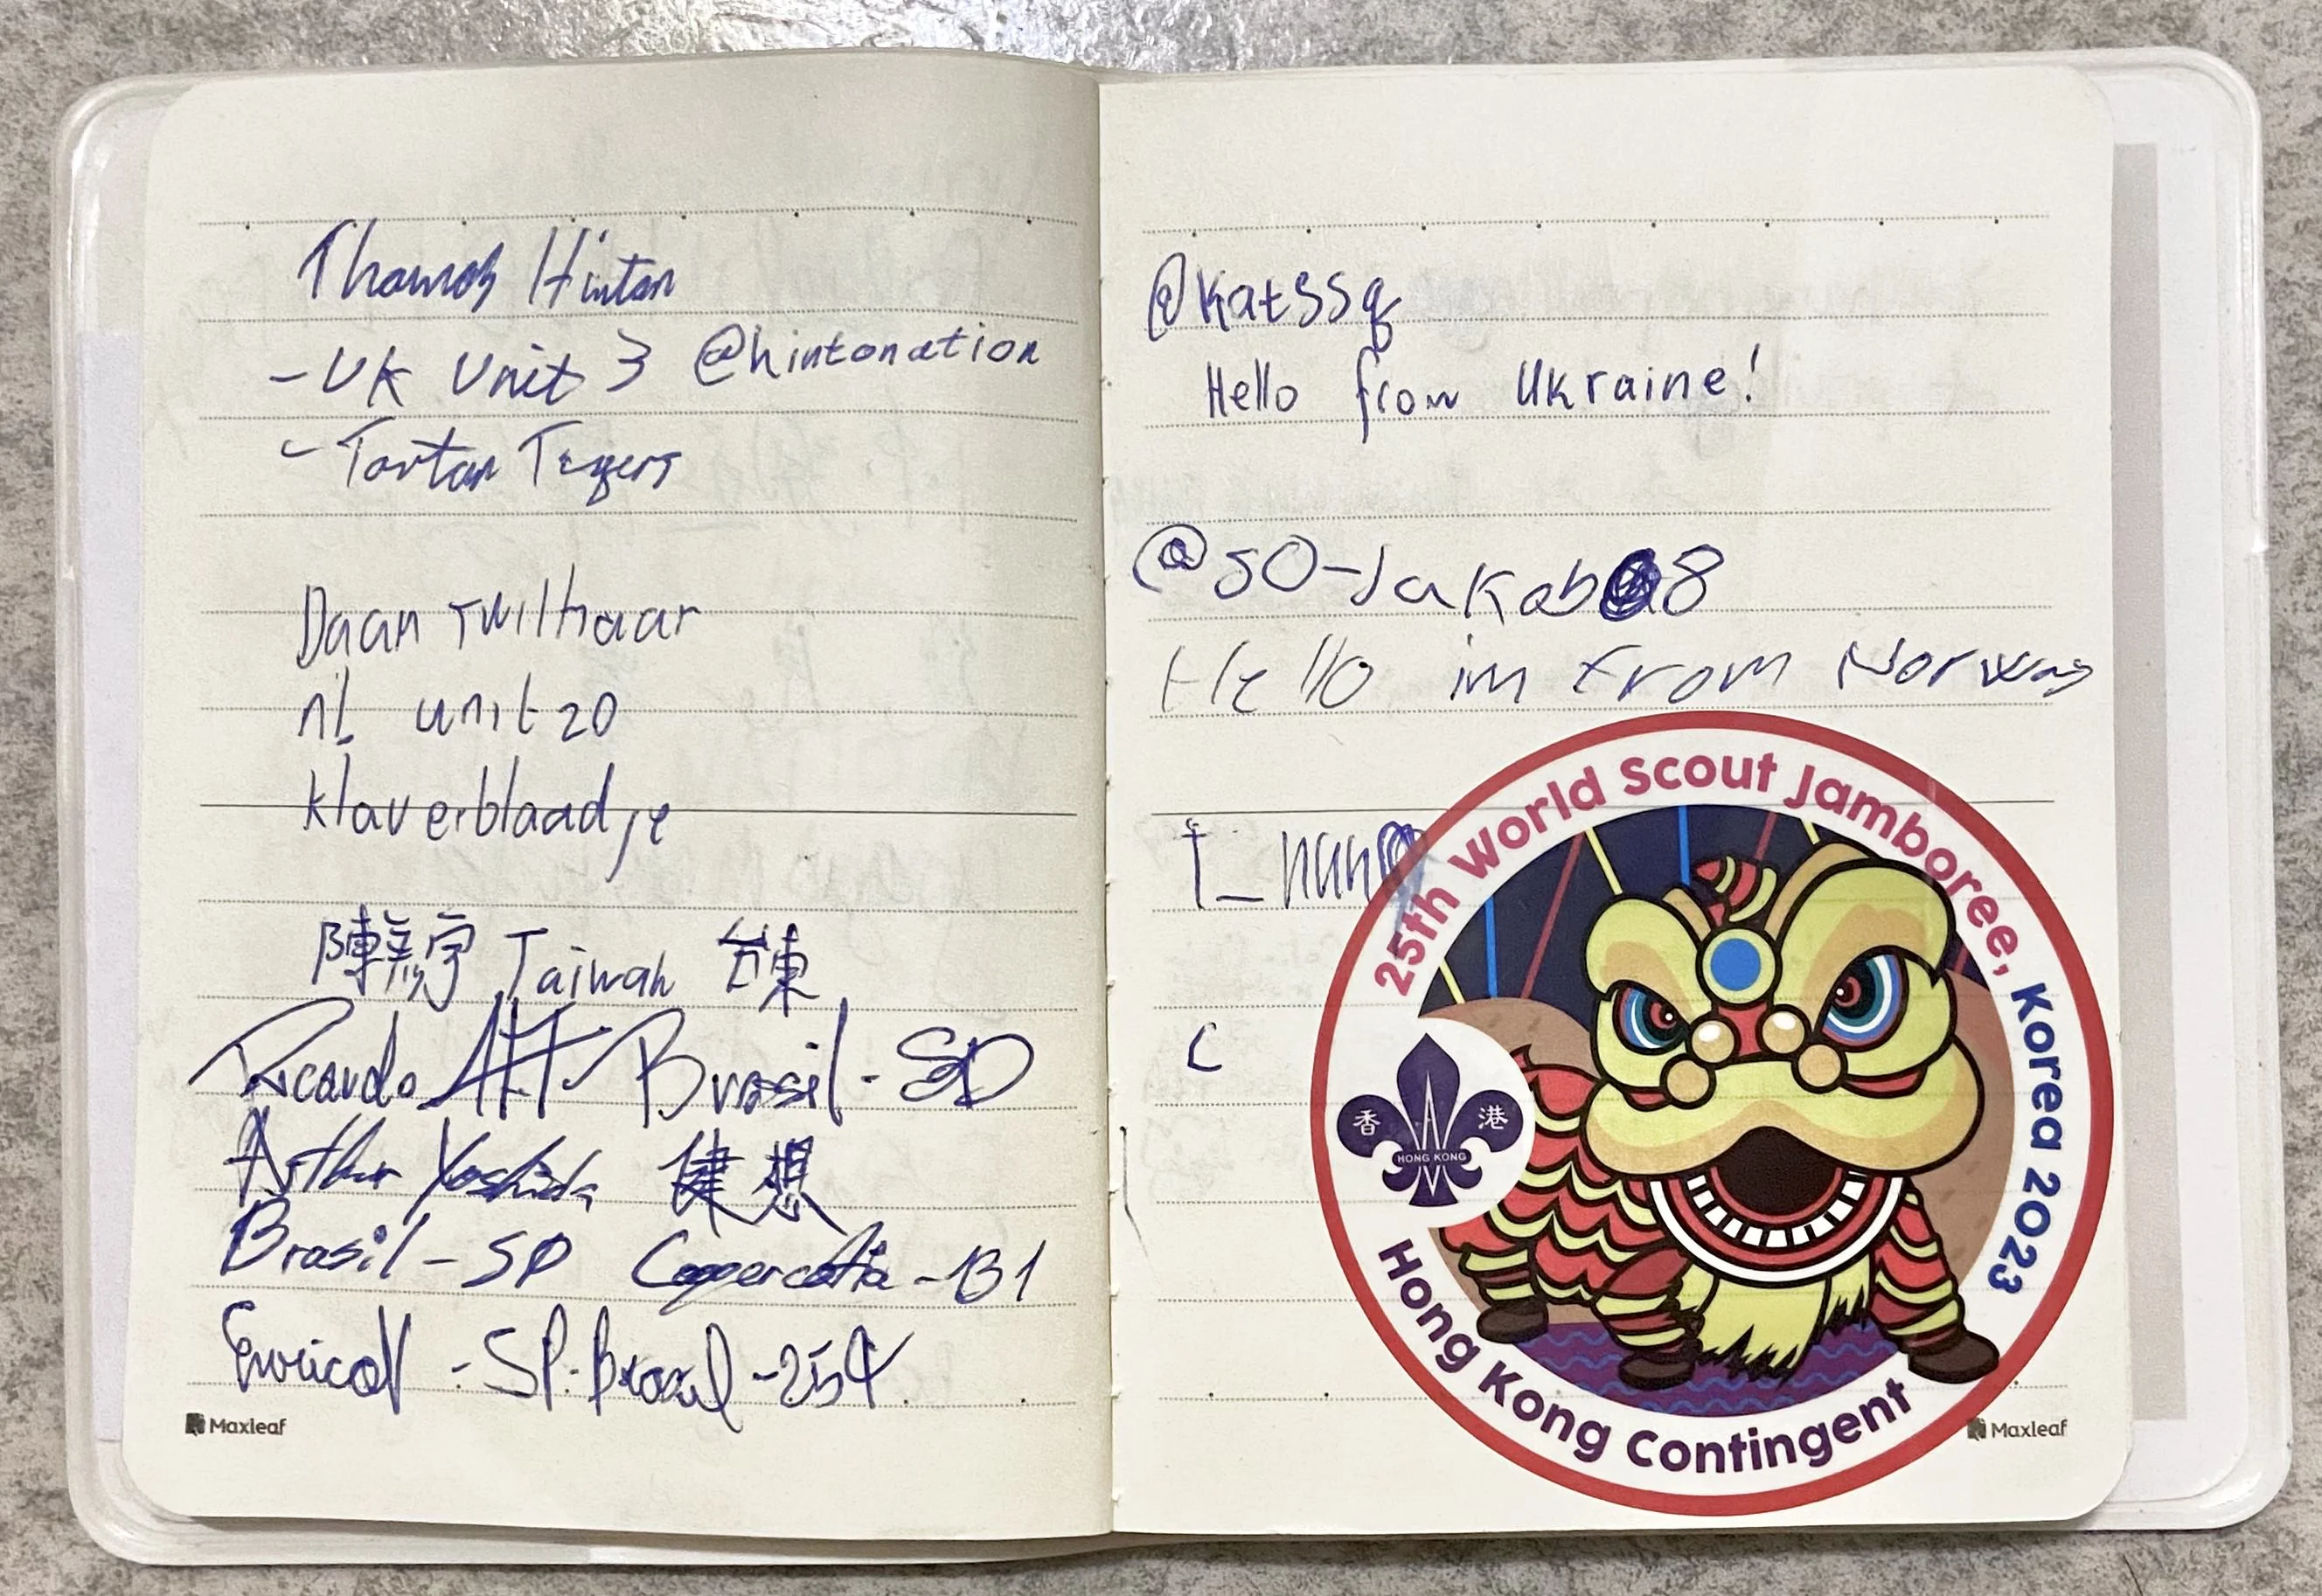 Thomas Hinton
- UK Unit 3 @hintonation
- Tartan Tigers
Daan Twilhaar
nl unit 20
klaverblaadje
陳 宇 Taiwan 台東
Ricardo Brasil - SP
Arthur Yoshida 健 想
Brasil - SP Coopercotia - B1
Enrico - SP - Brazil - 254
Maxleaf
@katssq
Hello from Ukraine!
@SO-Jakob 8
Hello im from Norway
t_nan
c
25th World Scout Jamboree, Korea 2023
香 港
HONG KONG
Hong Kong Contingent
Maxleaf